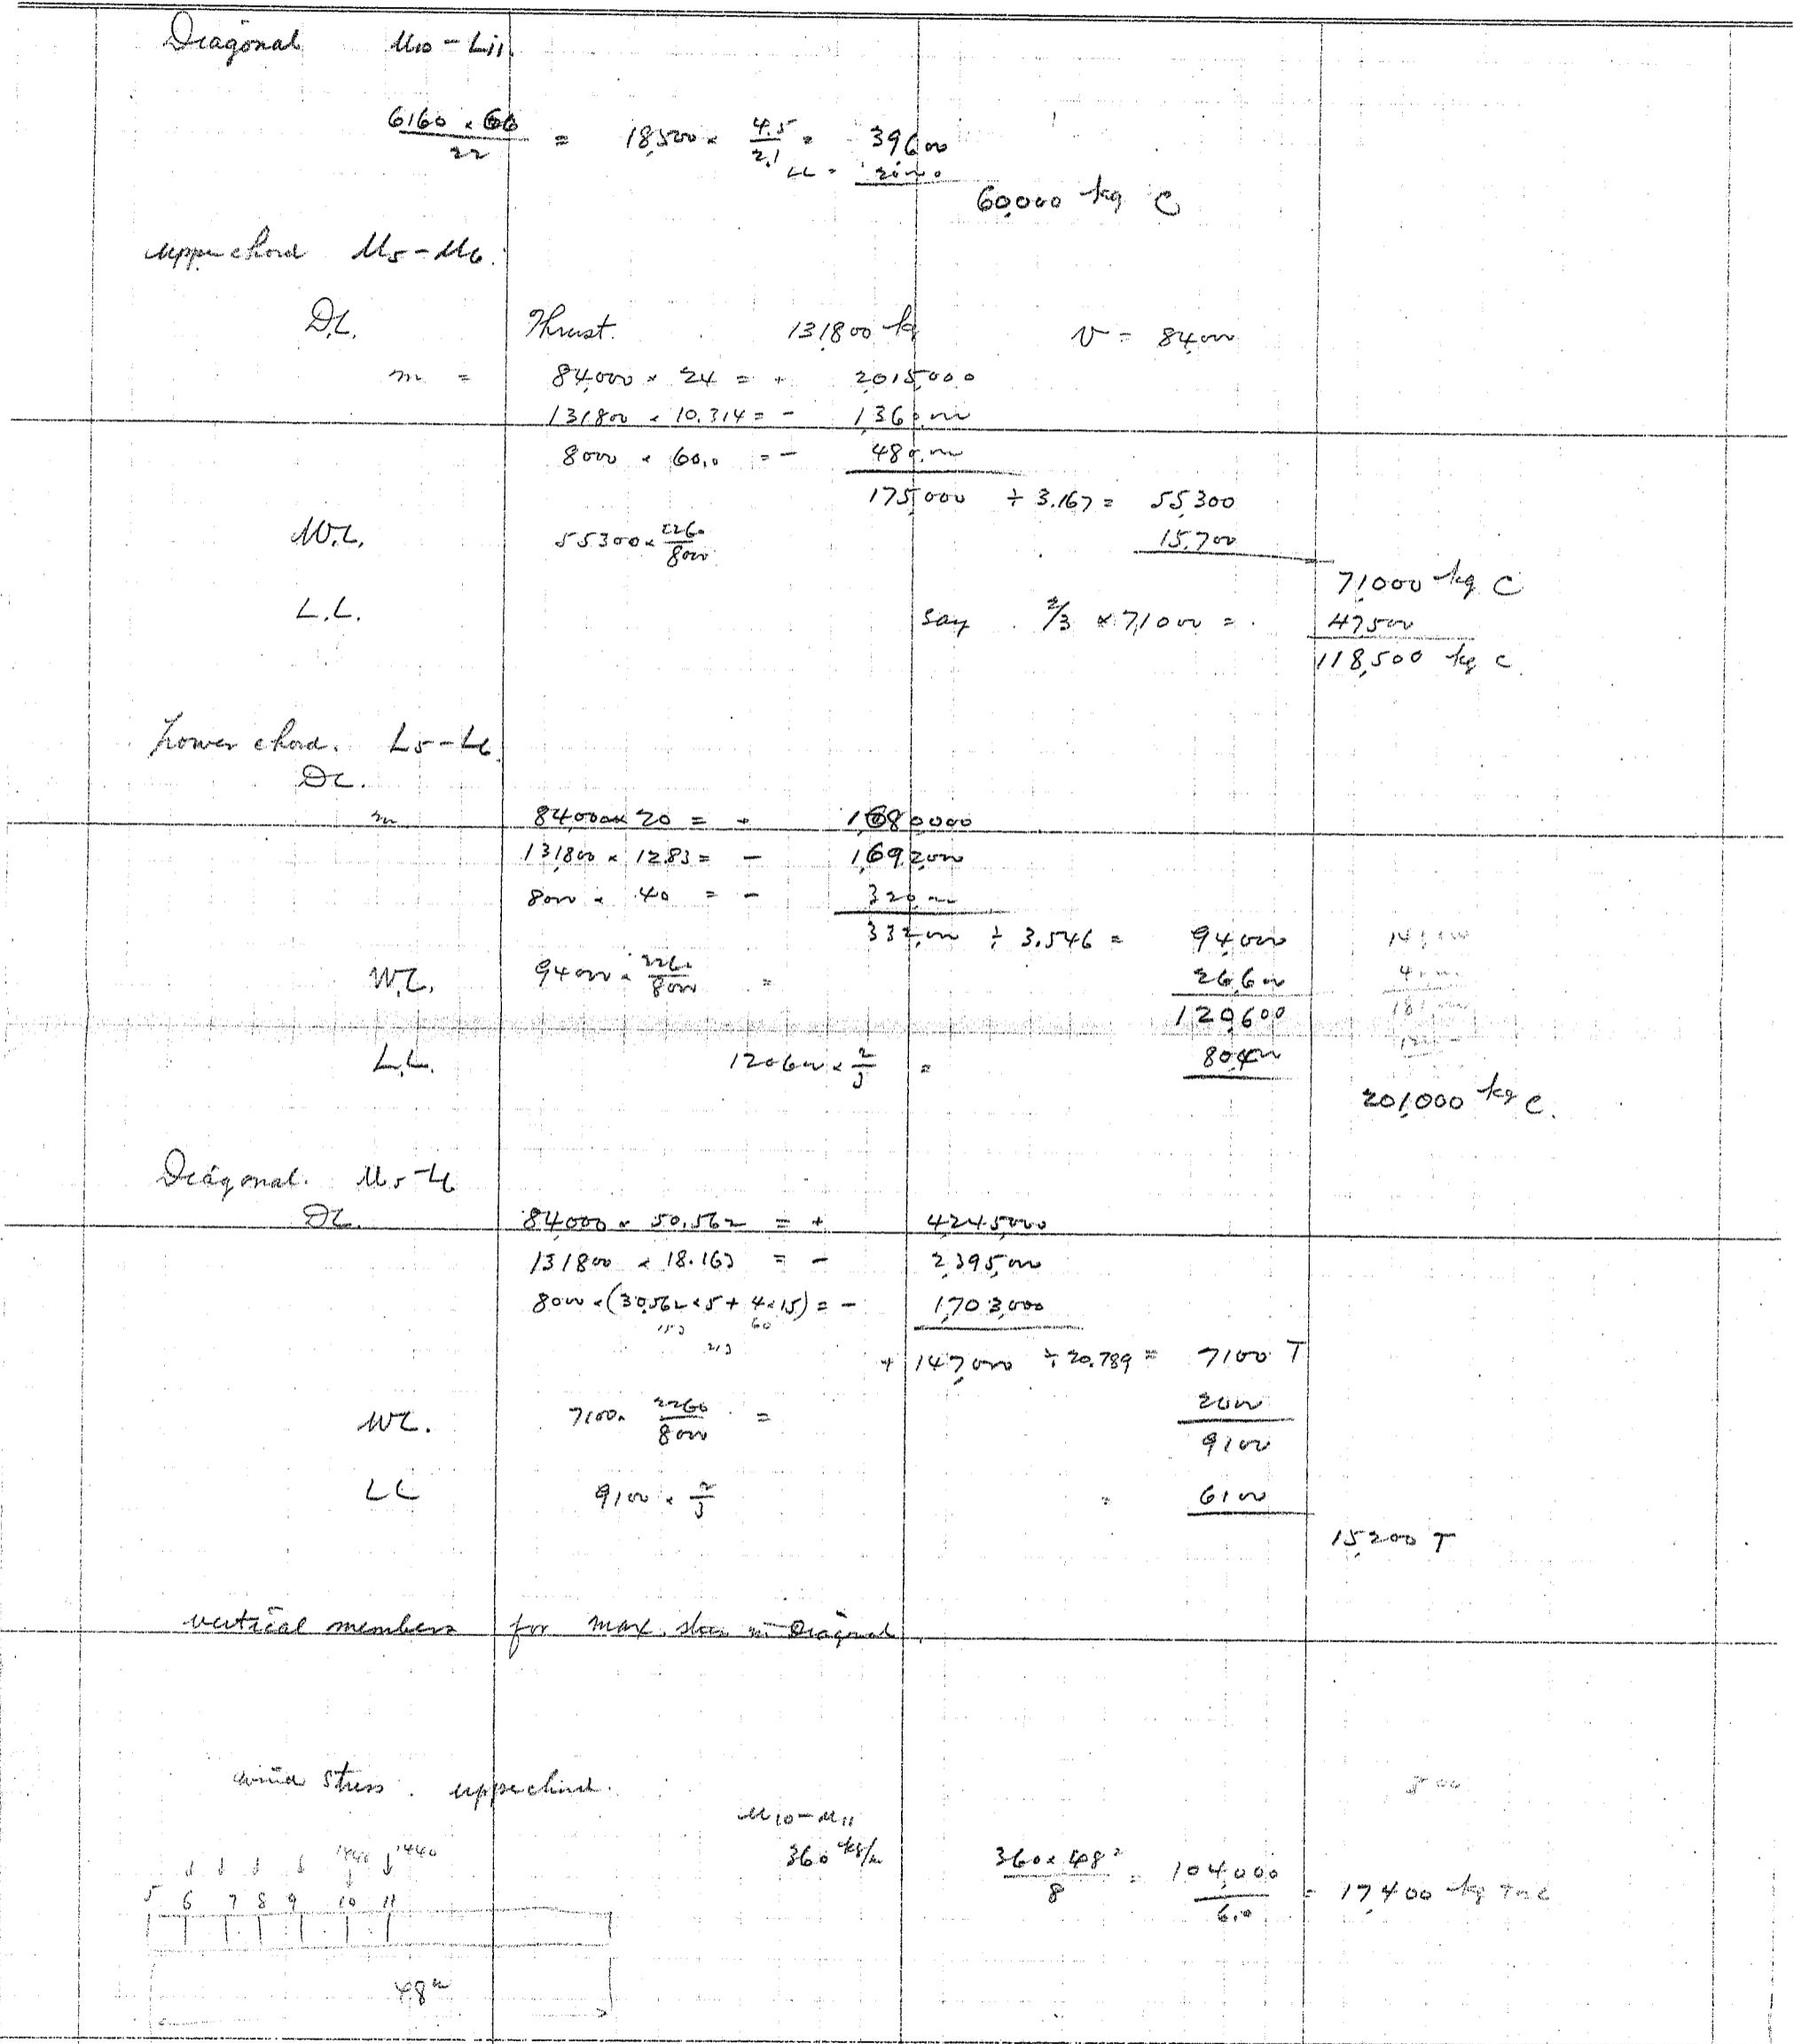 Diagonal U10 - L11
6160 × 66 / 22 = 18,500 × 4.5 / 2.1 = 39600
LL = 20,000
60,000 kg C
upper chord U5 - U6.
D.L. Thrust. 131,800 kg V = 84,000
m = 84,000 × 24 = + 2,015,000
131800 × 10.314 = - 1,360,000
8000 × 60.0 = - 480,000
175,000 ÷ 3.167 = 55,300
W.L. 55300 × 2260 / 8000 15,700
71,000 kg C
L.L. say 2/3 × 71,000 = 47500
118,500 kg C.
Lower chord. L5 - L6
DL.
m 84,000 × 20 = + 1,680,000
131,800 × 12.83 = - 1,692,000
8000 × 40 = - 320,000
332,000 ÷ 3.546 = 94,000
W.L. 94000 × 2260 / 8000 = 26,600
120,600
L.L. 120600 × 2/3 = 80,400
201,000 kg C.
Diagonal. U5 - L6
DL. 84,000 × 50.562 = + 4,245,000
131800 × 18.163 = - 2,395,000
8000 × (30.562 × 5 + 4 × 15) = - 1,703,000
153 60
213
+ 147,000 ÷ 20.789 = 7100 T
WL. 7100 × 2260 / 8000 = 2000
9100
LL 9100 × 2/3 = 6100
15,200 T
vertical members for max. stress in Diagonal
wind stress. upper chord.
U10 - U11
1440 1440
360 kg/m 360 × 48² / 8 = 104,000 / 6.0 = 17,400 kg T or C
5 6 7 8 9 10 11
48m